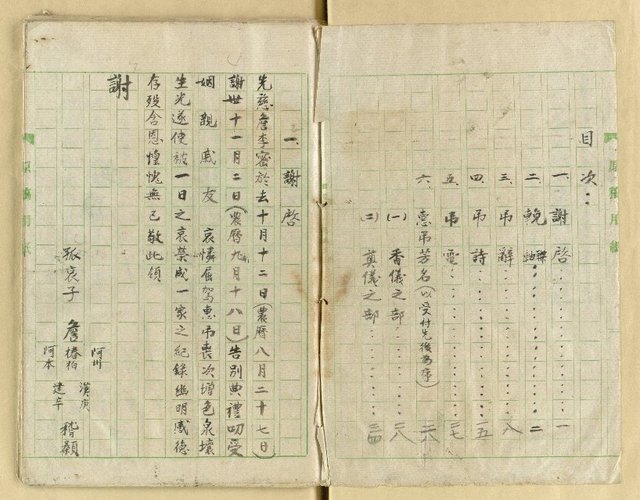 目次…
一、謝啓………一
二、輓聯軸………二
三、弔辭………八
四、弔詩………一五
五、弔電………二七
六、惠弔芳名(以受付先後為序)…二八
(一)香儀之部………二八
(二)奠儀之部………三四
原稿用紙
一、謝啓
先慈詹李蜜於去十月十二日(農曆八月二十七日)
謝世十一月二日(農曆九月十八日)告別典禮叨受
姻親戚友 哀憐屈駕惠弔喪次增色泉壤
生光遂使被一日之哀榮成一家之紀錄幽明感德
存歿含恩惶愧無已敬此領
謝
孤哀子 詹 阿川 椿柏 阿本 漢庚 建辛 稽顙
原稿用紙